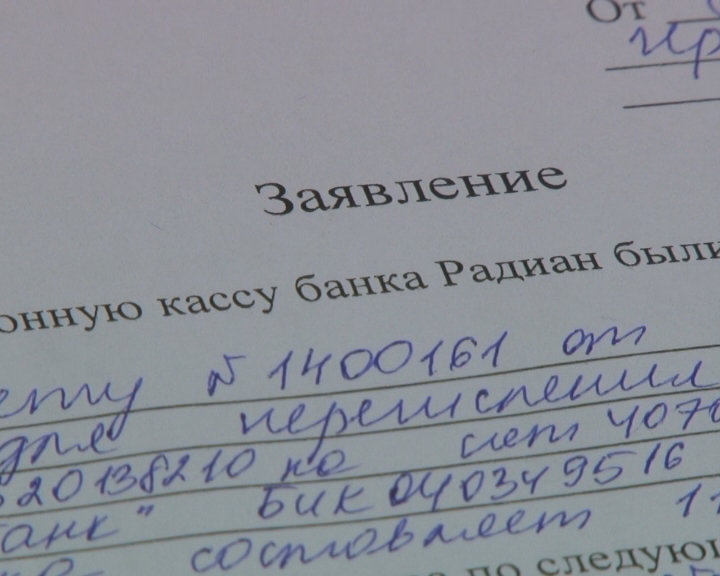 От
Заявление
онную кассу банка Радиан были
ету № 1400161 от
для перечисления
820138210 на счет 4070
банк" БИК 040349516
составляет 11
по следующ